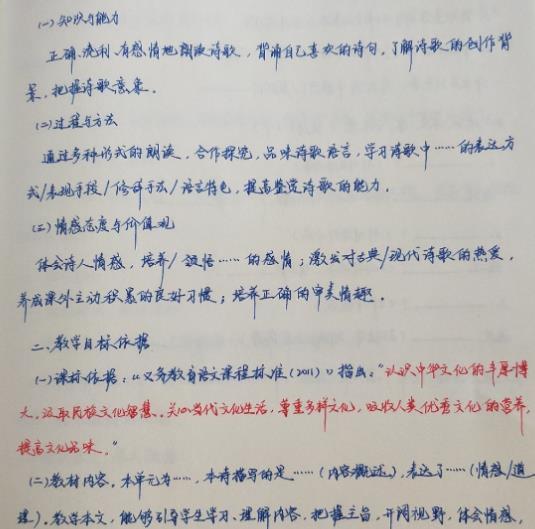 (一)知识与能力
正确、流利、有感情地朗读诗歌,背诵自己喜欢的诗句,了解诗歌的创作背
景,把握诗歌意象。
(二)过程与方法
通过多种形式的朗读,合作探究,品味诗歌语言,学习诗歌中……的表达方
式/表现手段/修辞手法/语言特色,提高鉴赏诗歌的能力。
(三)情感态度与价值观
体会诗人情感,培养/领悟……的感情;激发对古典/现代诗歌的热爱,
养成课外主动积累的良好习惯;培养正确的审美情趣。
二、教学目标依据
(一)课标依据:《义务教育语文课程标准(2011)》指出:“认识中华文化的丰厚博
大,汲取民族文化智慧。关心当代文化生活,尊重多样文化,吸收人类优秀文化的营养,
提高文化品味。”
(二)教材内容。本单元为……,本诗描写的是……(内容概述),表达了……(情感/道
理)。教学本文,能够引导学生学习、理解内容,把握主旨,开阔视野,体会情感,